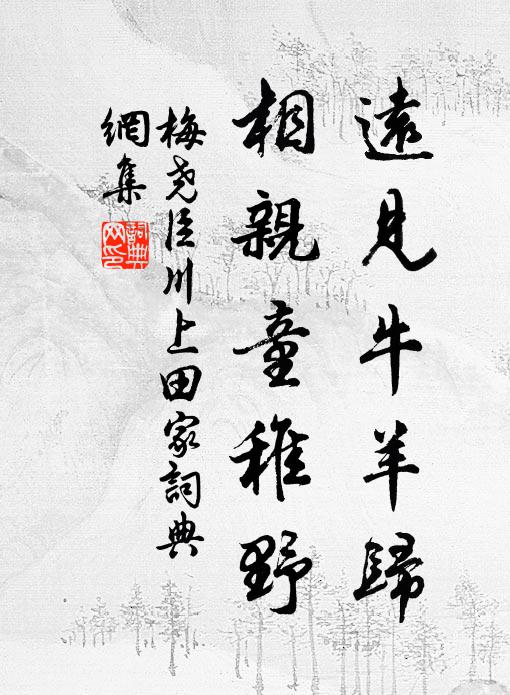 遠見牛羊歸
相親童稚野
梅堯臣川上田家詞典
網集
詞典
网印